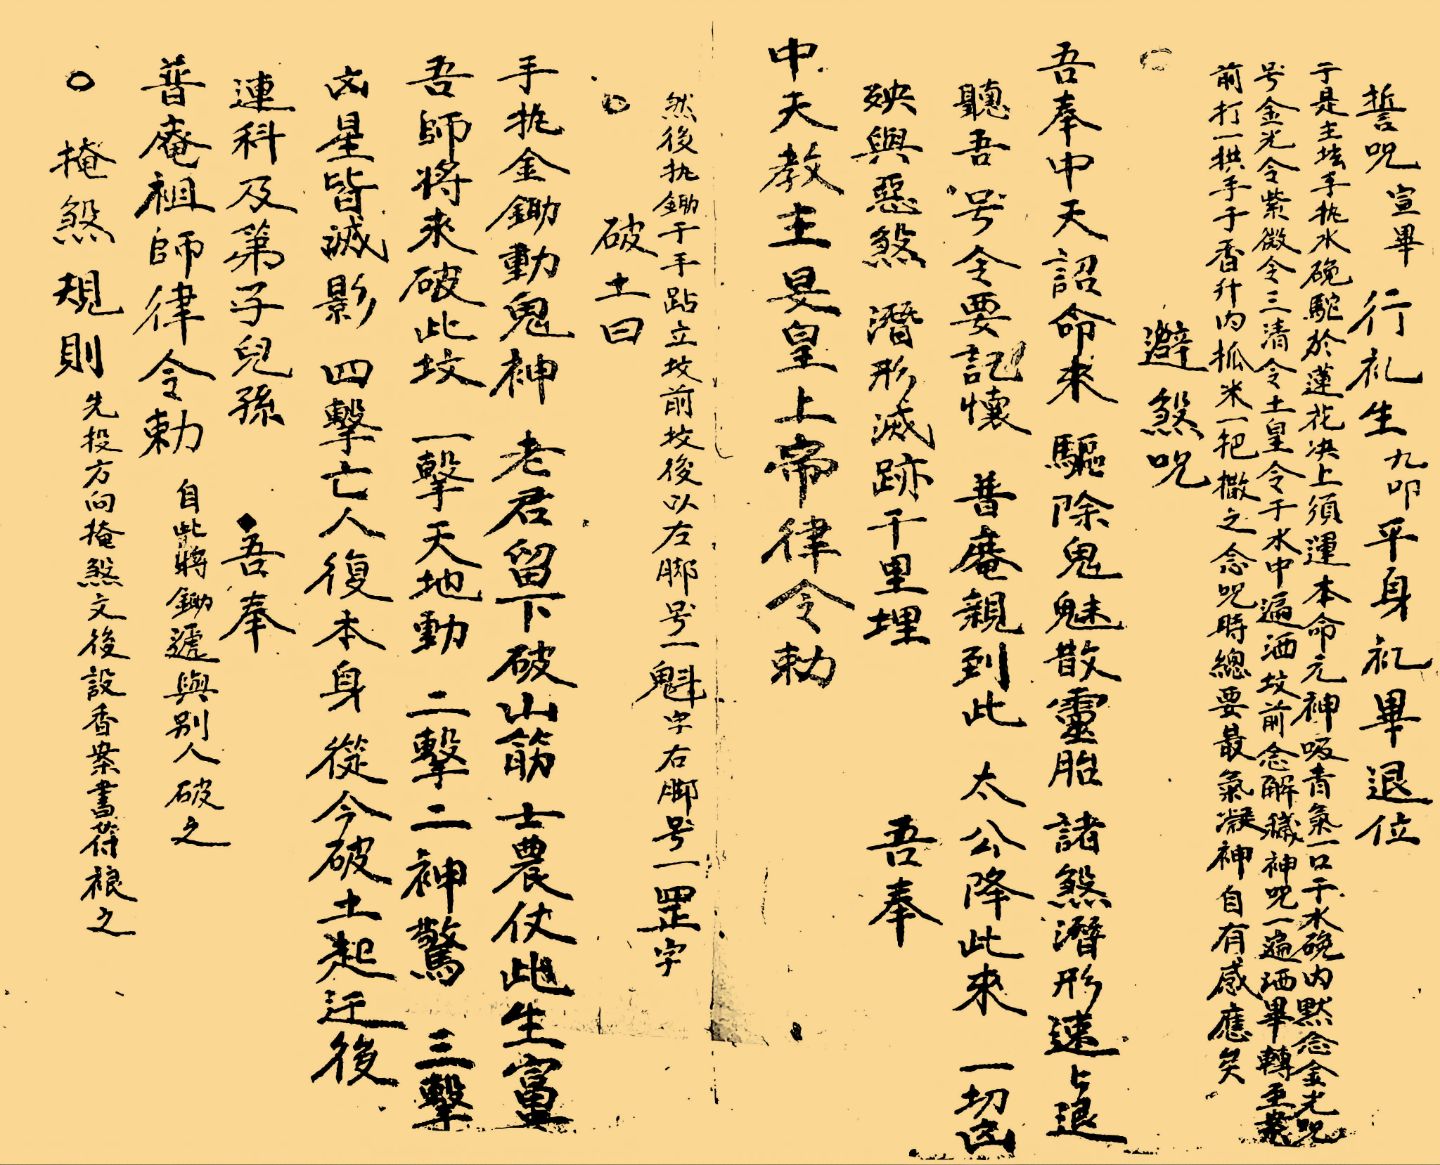 誓咒 宣畢 行礼生 九叩 平身礼畢退位
于是主坛手执水碗駝於蓮花决上須運本命元神吸青氣一口于水碗内默念金光咒
号金光令紫微令三清令土皇令于水中遍洒坟前念解穢神咒一遍洒畢轉至案
前打一拱手于香升内抓米一把撒之念咒時總要最氣凝神自有感應矣
避煞咒
吾奉中天詔命來 驅除鬼魅散靈胎 諸煞潛形速上退
聽吾号令要記懷 普庵親到此 太公降此來 一切凶
殃與惡煞 潛形滅跡千里埋 吾奉
中天教主旻皇上帝律令勅
然後执鋤于手跕立坟前坟後以左脚号一魁字右脚号一罡字
○ 破土曰
手执金鋤動鬼神 老君留下破山筋 士農仗此生富
吾師將來破此坟 一擊天地動 二擊二神驚 三擊
凶星皆滅影 四擊亡人復本身 從今破土起迁後
連科及第子兒孫 吾奉
普庵祖師律令勅 自此將鋤遞與别人破之
○ 掩煞規則 先投方向掩煞文後設香案書符禳之